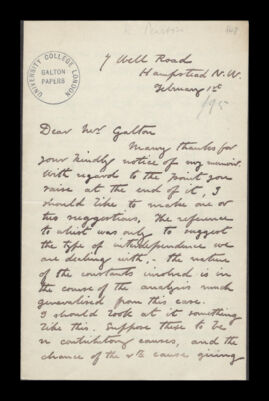 K. Pearson
UNIVERSITY COLLEGE LONDON
GALTON
PAPERS
7 Well Road
Hampstead N.W.
February 1st
/95
Dear Mr Galton
Many thanks for
your kindly notice of my memoir.
With regard to the point you
raise at the end of it, I
should like to make one or
two suggestions. The reference
to whist was only to suggest
the type of interdependence we
are dealing with, - the nature
of the constants involved is in
the course of the analysis much
generalised from this case.
I should look at it something
like this. Suppose there to be
n contributory causes, and the
chance of the rth cause giving